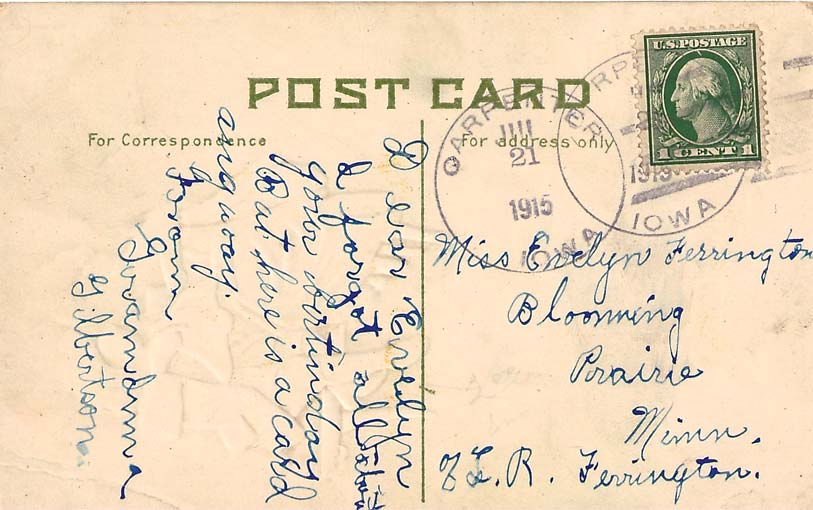 POST CARD
For Correspondence
For address only
U.S. POSTAGE
1 CENT 1
CARPENTER
JUL
21
1915
IOWA
1915
IOWA
Dear Evelyn
I forgot all about
your birtinday
But here is a card
anyway.
From
Grandma
Gilbertson.
Miss Evelyn Ferrington
Blooming
Prairie
Minn.
R. Ferrington.